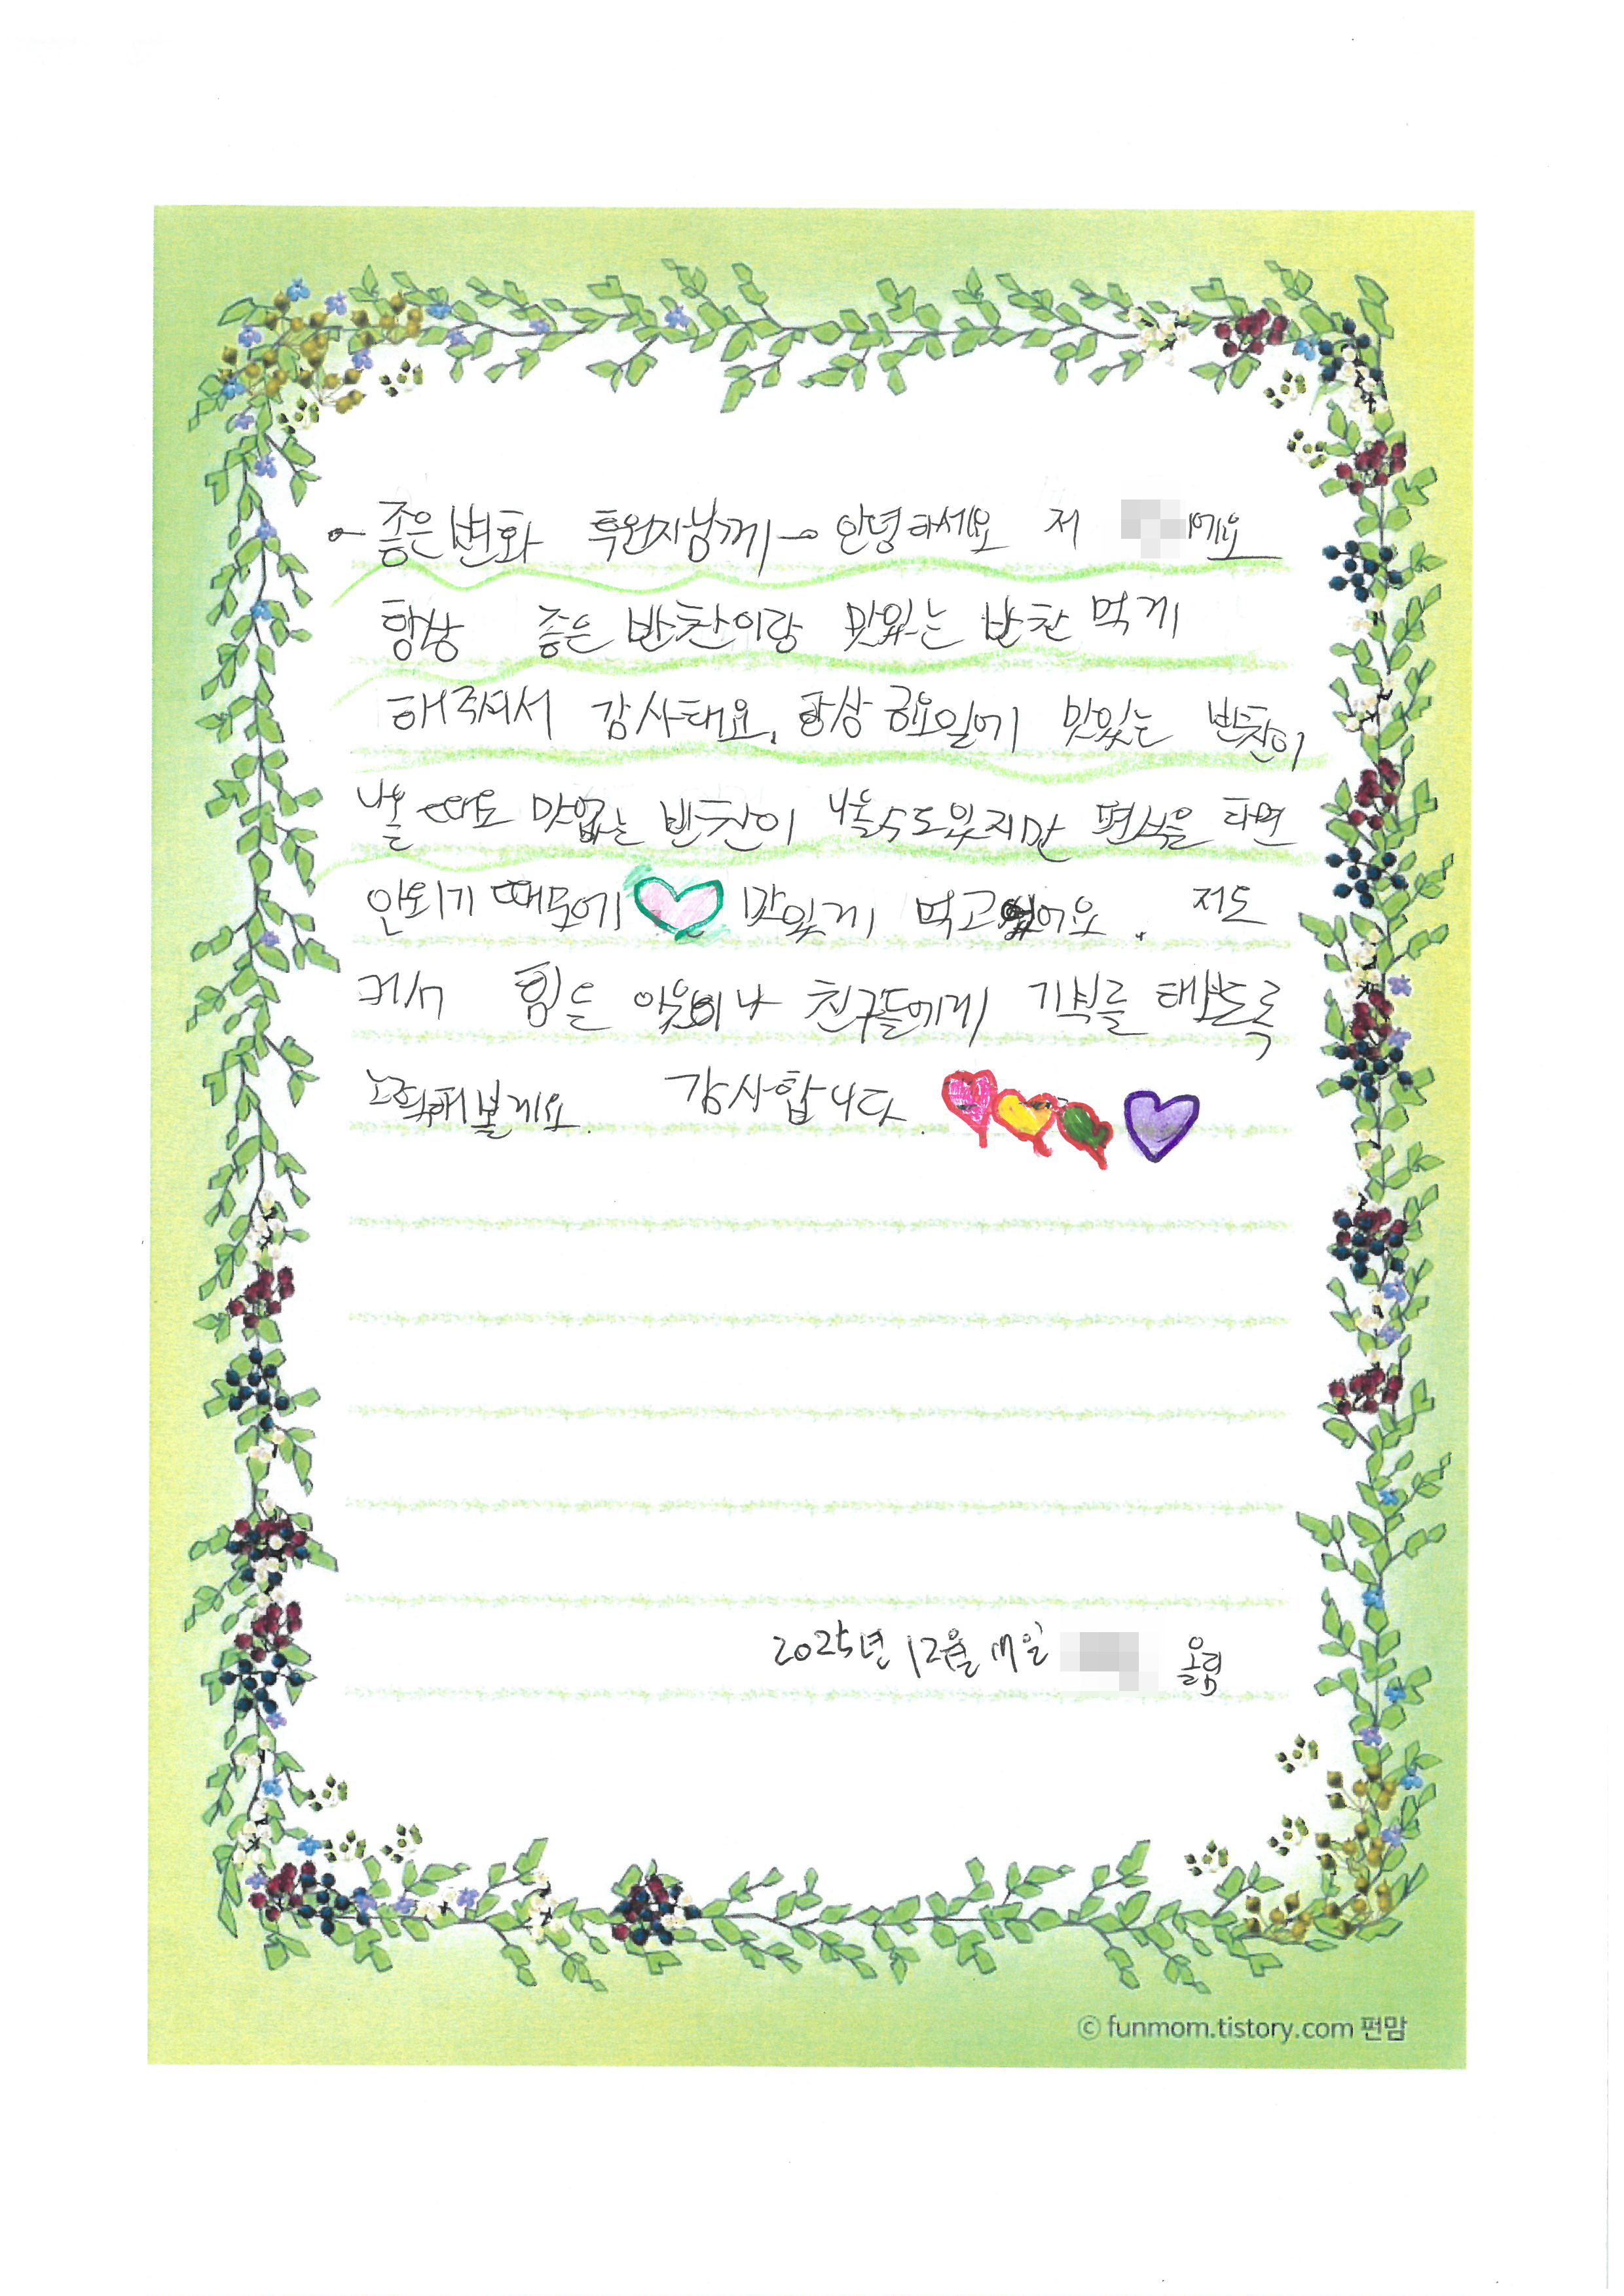 좋은변화 후원자님께 안녕하세요 저 이에요
항상 좋은 반찬이랑 맛있는 반찬 먹게
해주셔서 감사해요. 항상 금요일에 맛있는 반찬이
나올 때도 맛없는 반찬이 나올수도있지만 편식을 하면
안되기 때문에 맛있게 먹고있어요. 저도
커서 힘든 이웃이나 친구들에게 기부를 해보도록
노력해볼게요. 감사합니다.
2025년 12월 일 올림
© funmom.tistory.com 펀맘